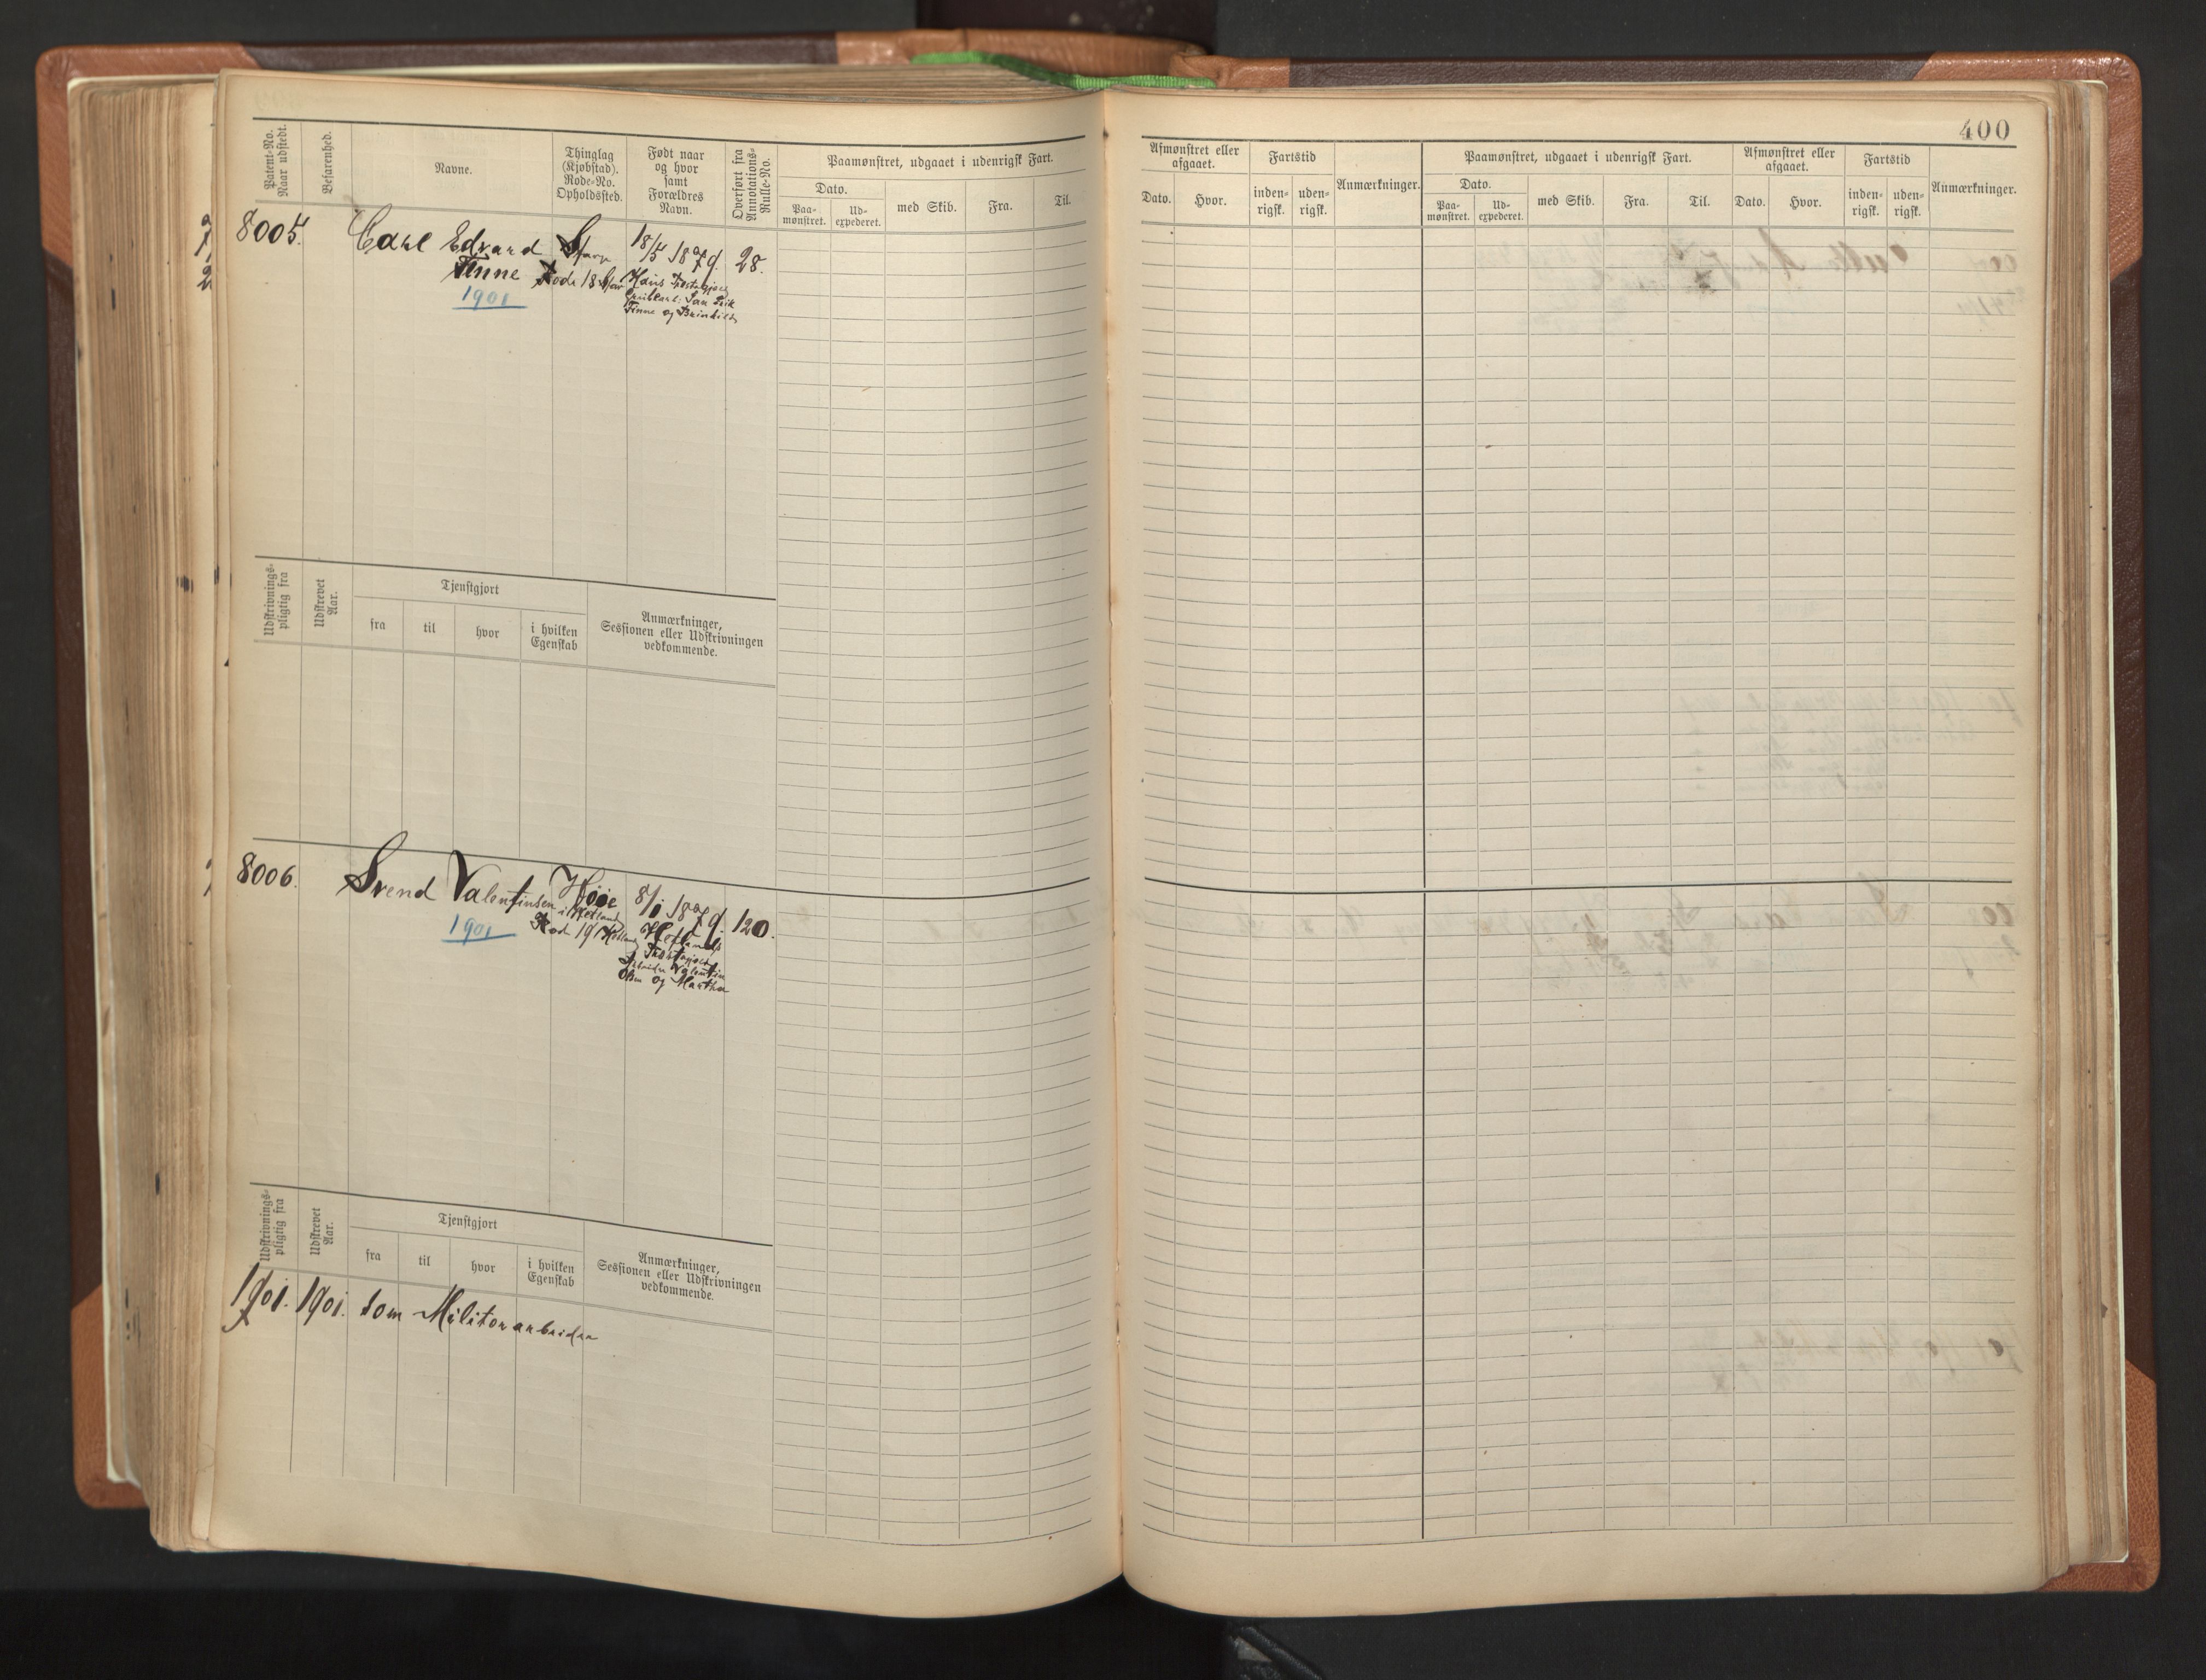 400
Patent-No. Naar udstedt.
Befarenhed.
Navne.
Thinglag (Kjøbstad). Rode-No. Opholdssted.
Født naar og hvor samt Forældres Navn.
Overført fra Annotations-Rulle-No.
Paamønstret, udgaaet i udenrigsk Fart.
Dato.
Paamønstret.
Udexpederet.
med Skib.
Fra.
Til.
Afmønstret eller afgaaet.
Dato.
Hvor.
Fartstid
indenrigsk.
udenrigsk.
Anmærkninger.
Paamønstret, udgaaet i udenrigsk Fart.
Dato.
Paamønstret.
Udexpederet.
med Skib.
Fra.
Til.
Afmønstret eller afgaaet.
Dato.
Hvor.
Fartstid
indenrigsk.
udenrigsk.
Anmærkninger.
8005.
Carl Edvard
Finne
1901
Rode 18
18/5 1879.
28.
Finne og
Udskrivningspligtig fra
Udskrevet Aar.
Tjenstgjort
fra
til
hvor
i hvilken Egenskab
Anmærkninger, Sessionen eller Udskrivningen vedkommende.
8006.
Svend Valentinsen Høie
i Hetland
1901
Rode 19 Hetland
8/1 1879.
Hetlands
Valentin
Olsen og Martha
120.
Udskrivningspligtig fra
Udskrevet Aar.
Tjenstgjort
fra
til
hvor
i hvilken Egenskab
Anmærkninger, Sessionen eller Udskrivningen vedkommende.
1901. 1901. som Militærarbeider